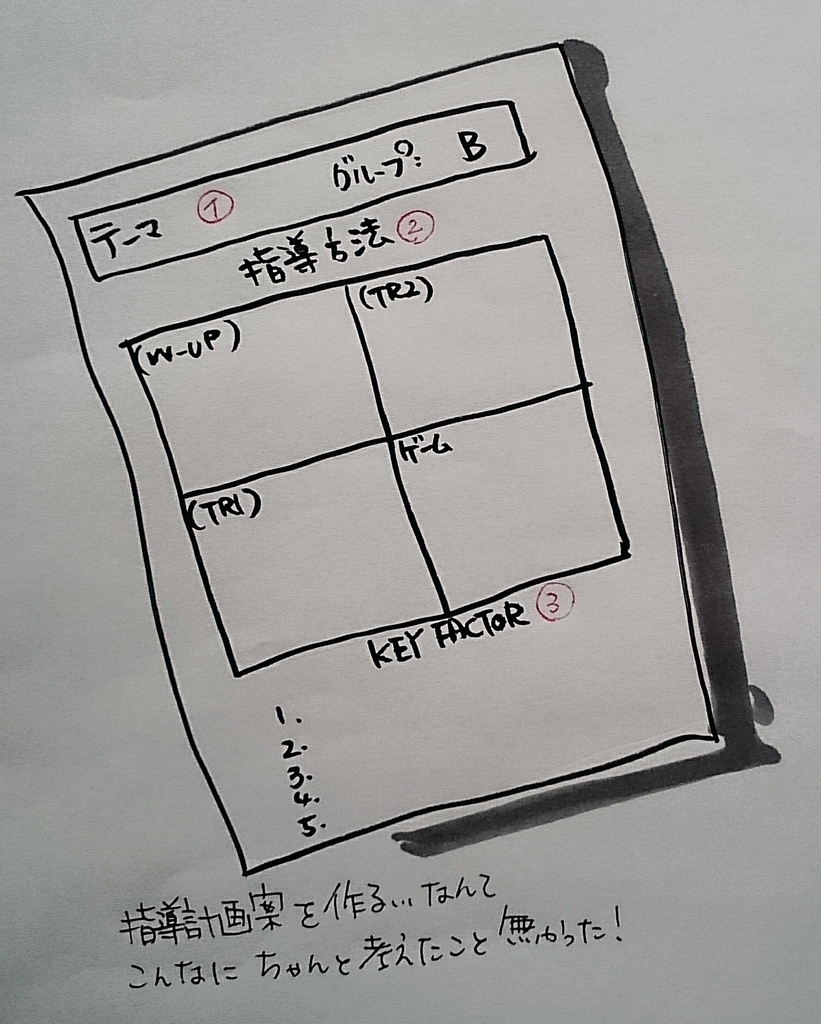 テーマ ① グループ: B
指導方法 ②
(W-UP) (TR2)
(TR1) ゲーム
KEY FACTOR ③
1.
2.
3.
4.
5.
指導計画案を作る... なんて
こんなに ちゃんと 考えたこと 無かった!